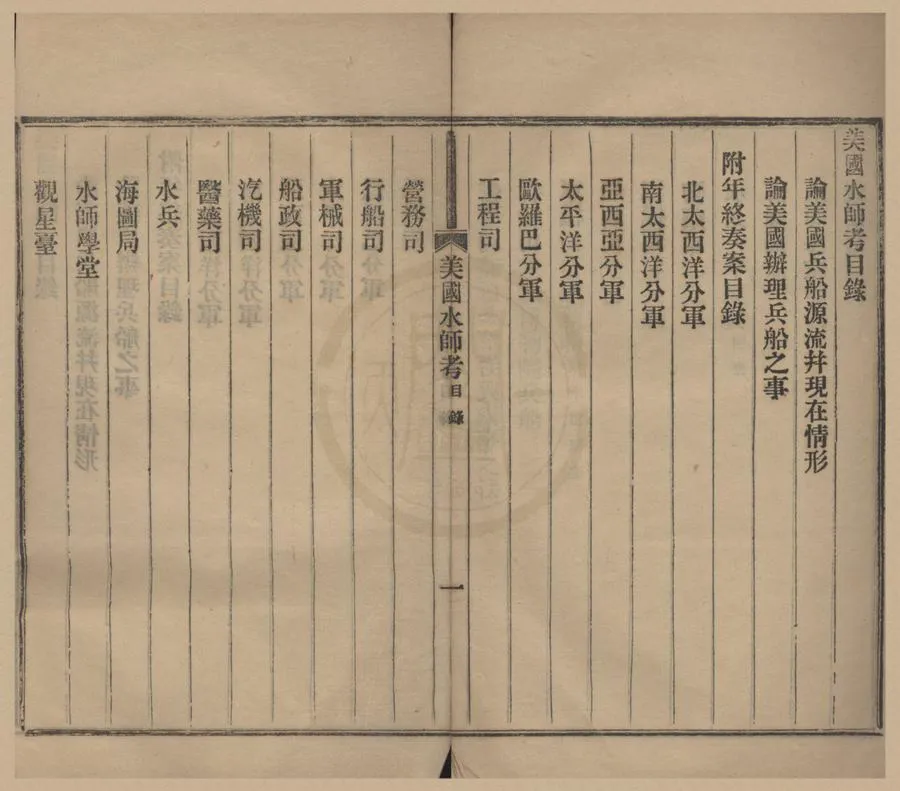 美國水師考目錄
論美國兵船源流幷現在情形
論美國辦理兵船之事
附年終奏案目錄
北太西洋分軍
南太西洋分軍
亞西亞分軍
太平洋分軍
歐羅巴分軍
工程司
美國水師考 目錄 一
營務司
行船司
軍械司
船政司
汽機司
醫藥司
水兵
海圖局
水師學堂
觀星臺